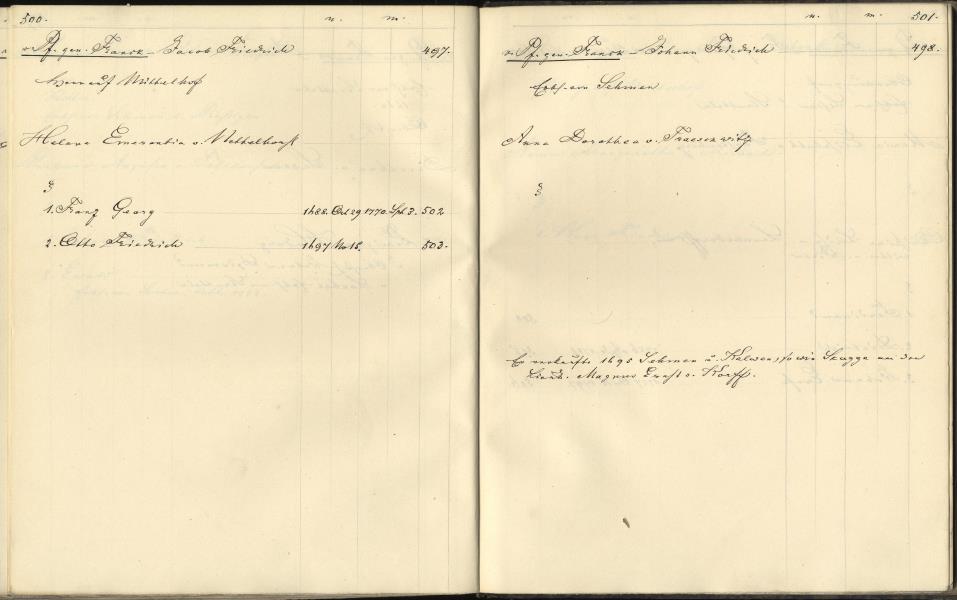 500. n. m.
v. Pf. gen. Franck - Jacob Friedrich 497.
Herr auf Mittelhof
Helena Emerentia v. Mettelhorst
§
1. Franz Georg 1688. Oct 29 1770. Spt 3. 502
2. Otto Friedrich 1697 15. 503.
n. m. 501.
v. Pf. gen. Franck - Johann Friedrich 498.
Erbh. von Sehmen
Anna Dorothea v. Traeserwitz
§
Er verkaufte 1695 Sehmen u. Kalwen, so wie Skugge an den
Magnus Ernst v. Korff.